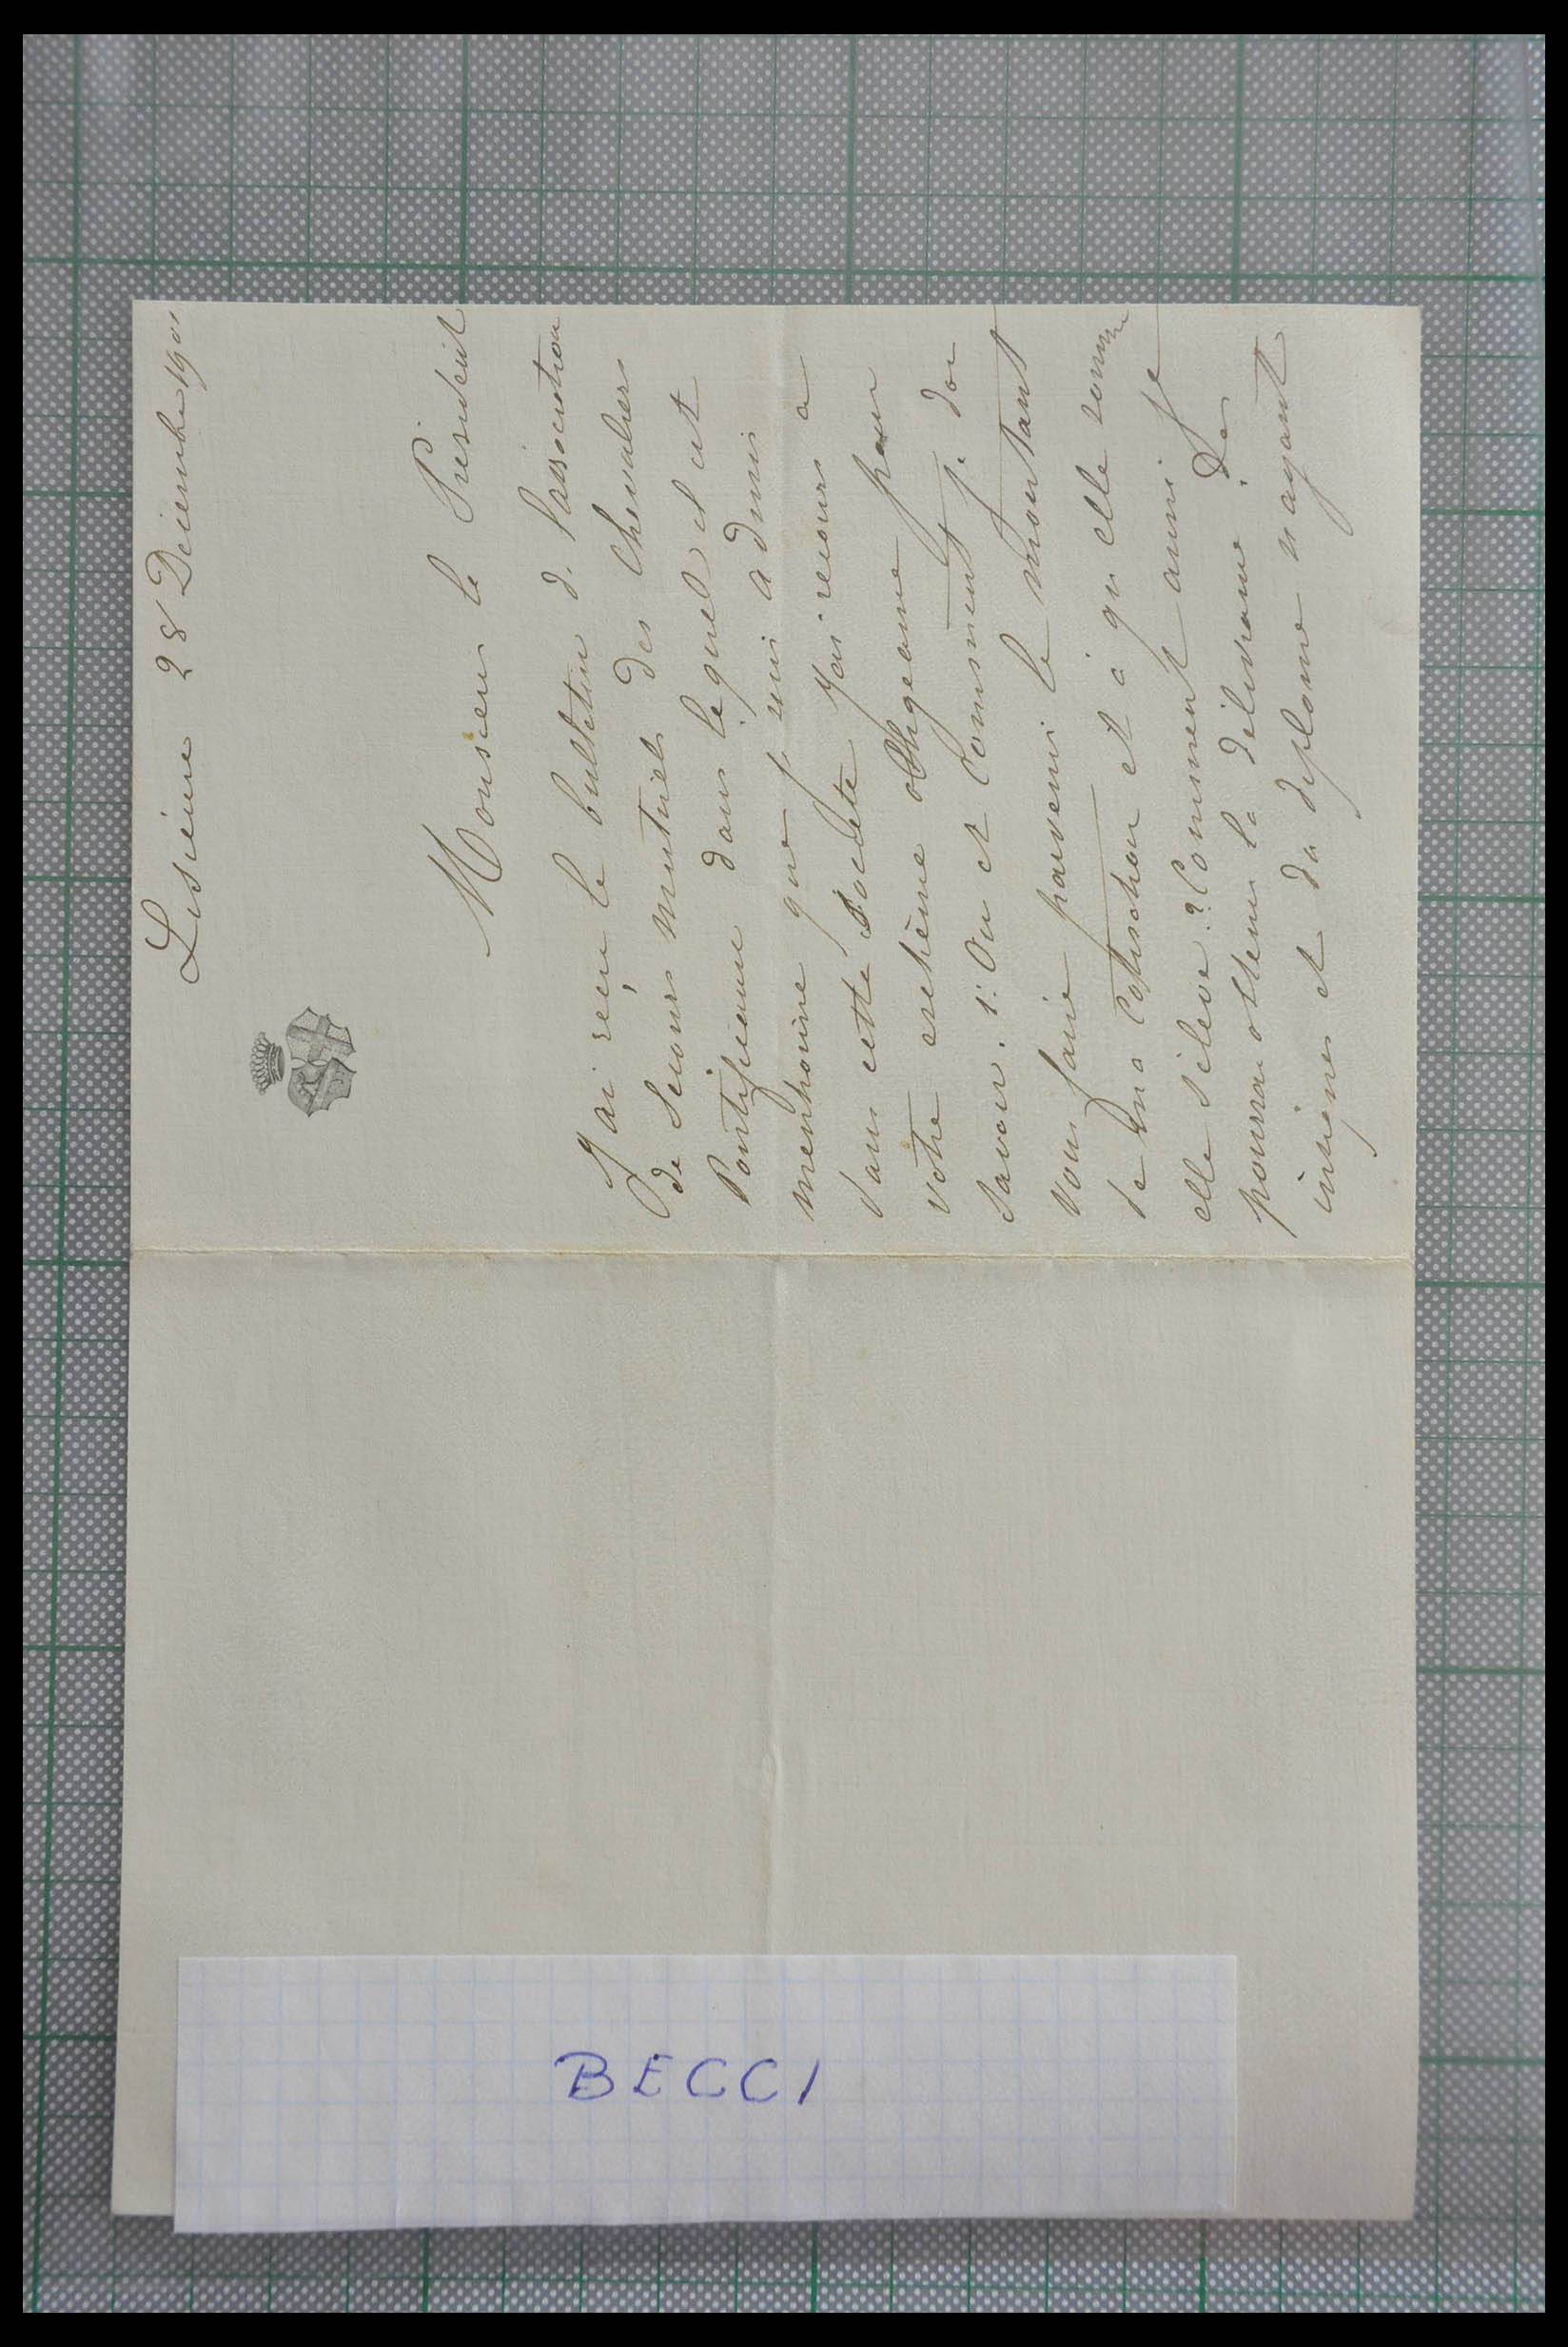 28 Décembre 1901
Monsieur le Président
J'ai reçu le bulletin de l'association
de Secours mutuels des Chevaliers
Pontificaux dans lequel il est
mentionné que je suis admis
dans cette Société j'ai recours à
votre extrème obligeance pour
Savoir. 1: Ou et Comment je dois
vous faire parvenir le montant
de ma Cotisation et à qu elle somme
elle s'élève? Comment aussi je
pourrai obtenir la délivrance des
insignes et du diplome n'ayant
BECCI